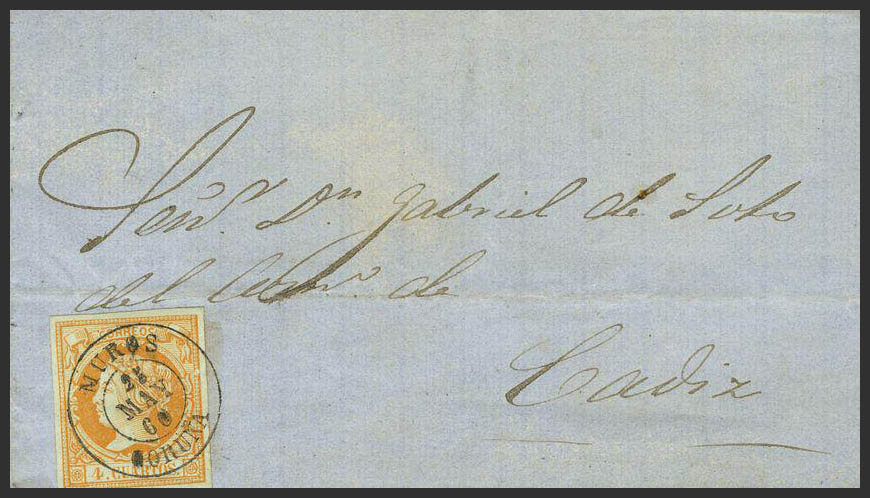 Señr. Dn. Gabriel de Soto
del Comº. de
Cadiz
CORREOS
MUROS
25
MAY
60
CORUÑA
4. CUARTOS.